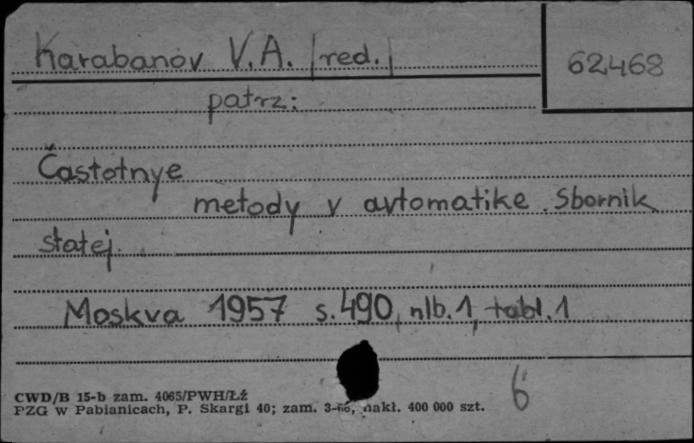 Karabanov V.A. /red./
62468
patrz:
Častotnye
metody v avtomatike. Sbornik
statej.
Moskva 1957 s.490, nlb.1, tabl.1
6
CWD/B 15-b zam. 4065/PWH/Łź
PZG w Pabianicach, P. Skargi 40; zam. nakł. 400 000 szt.